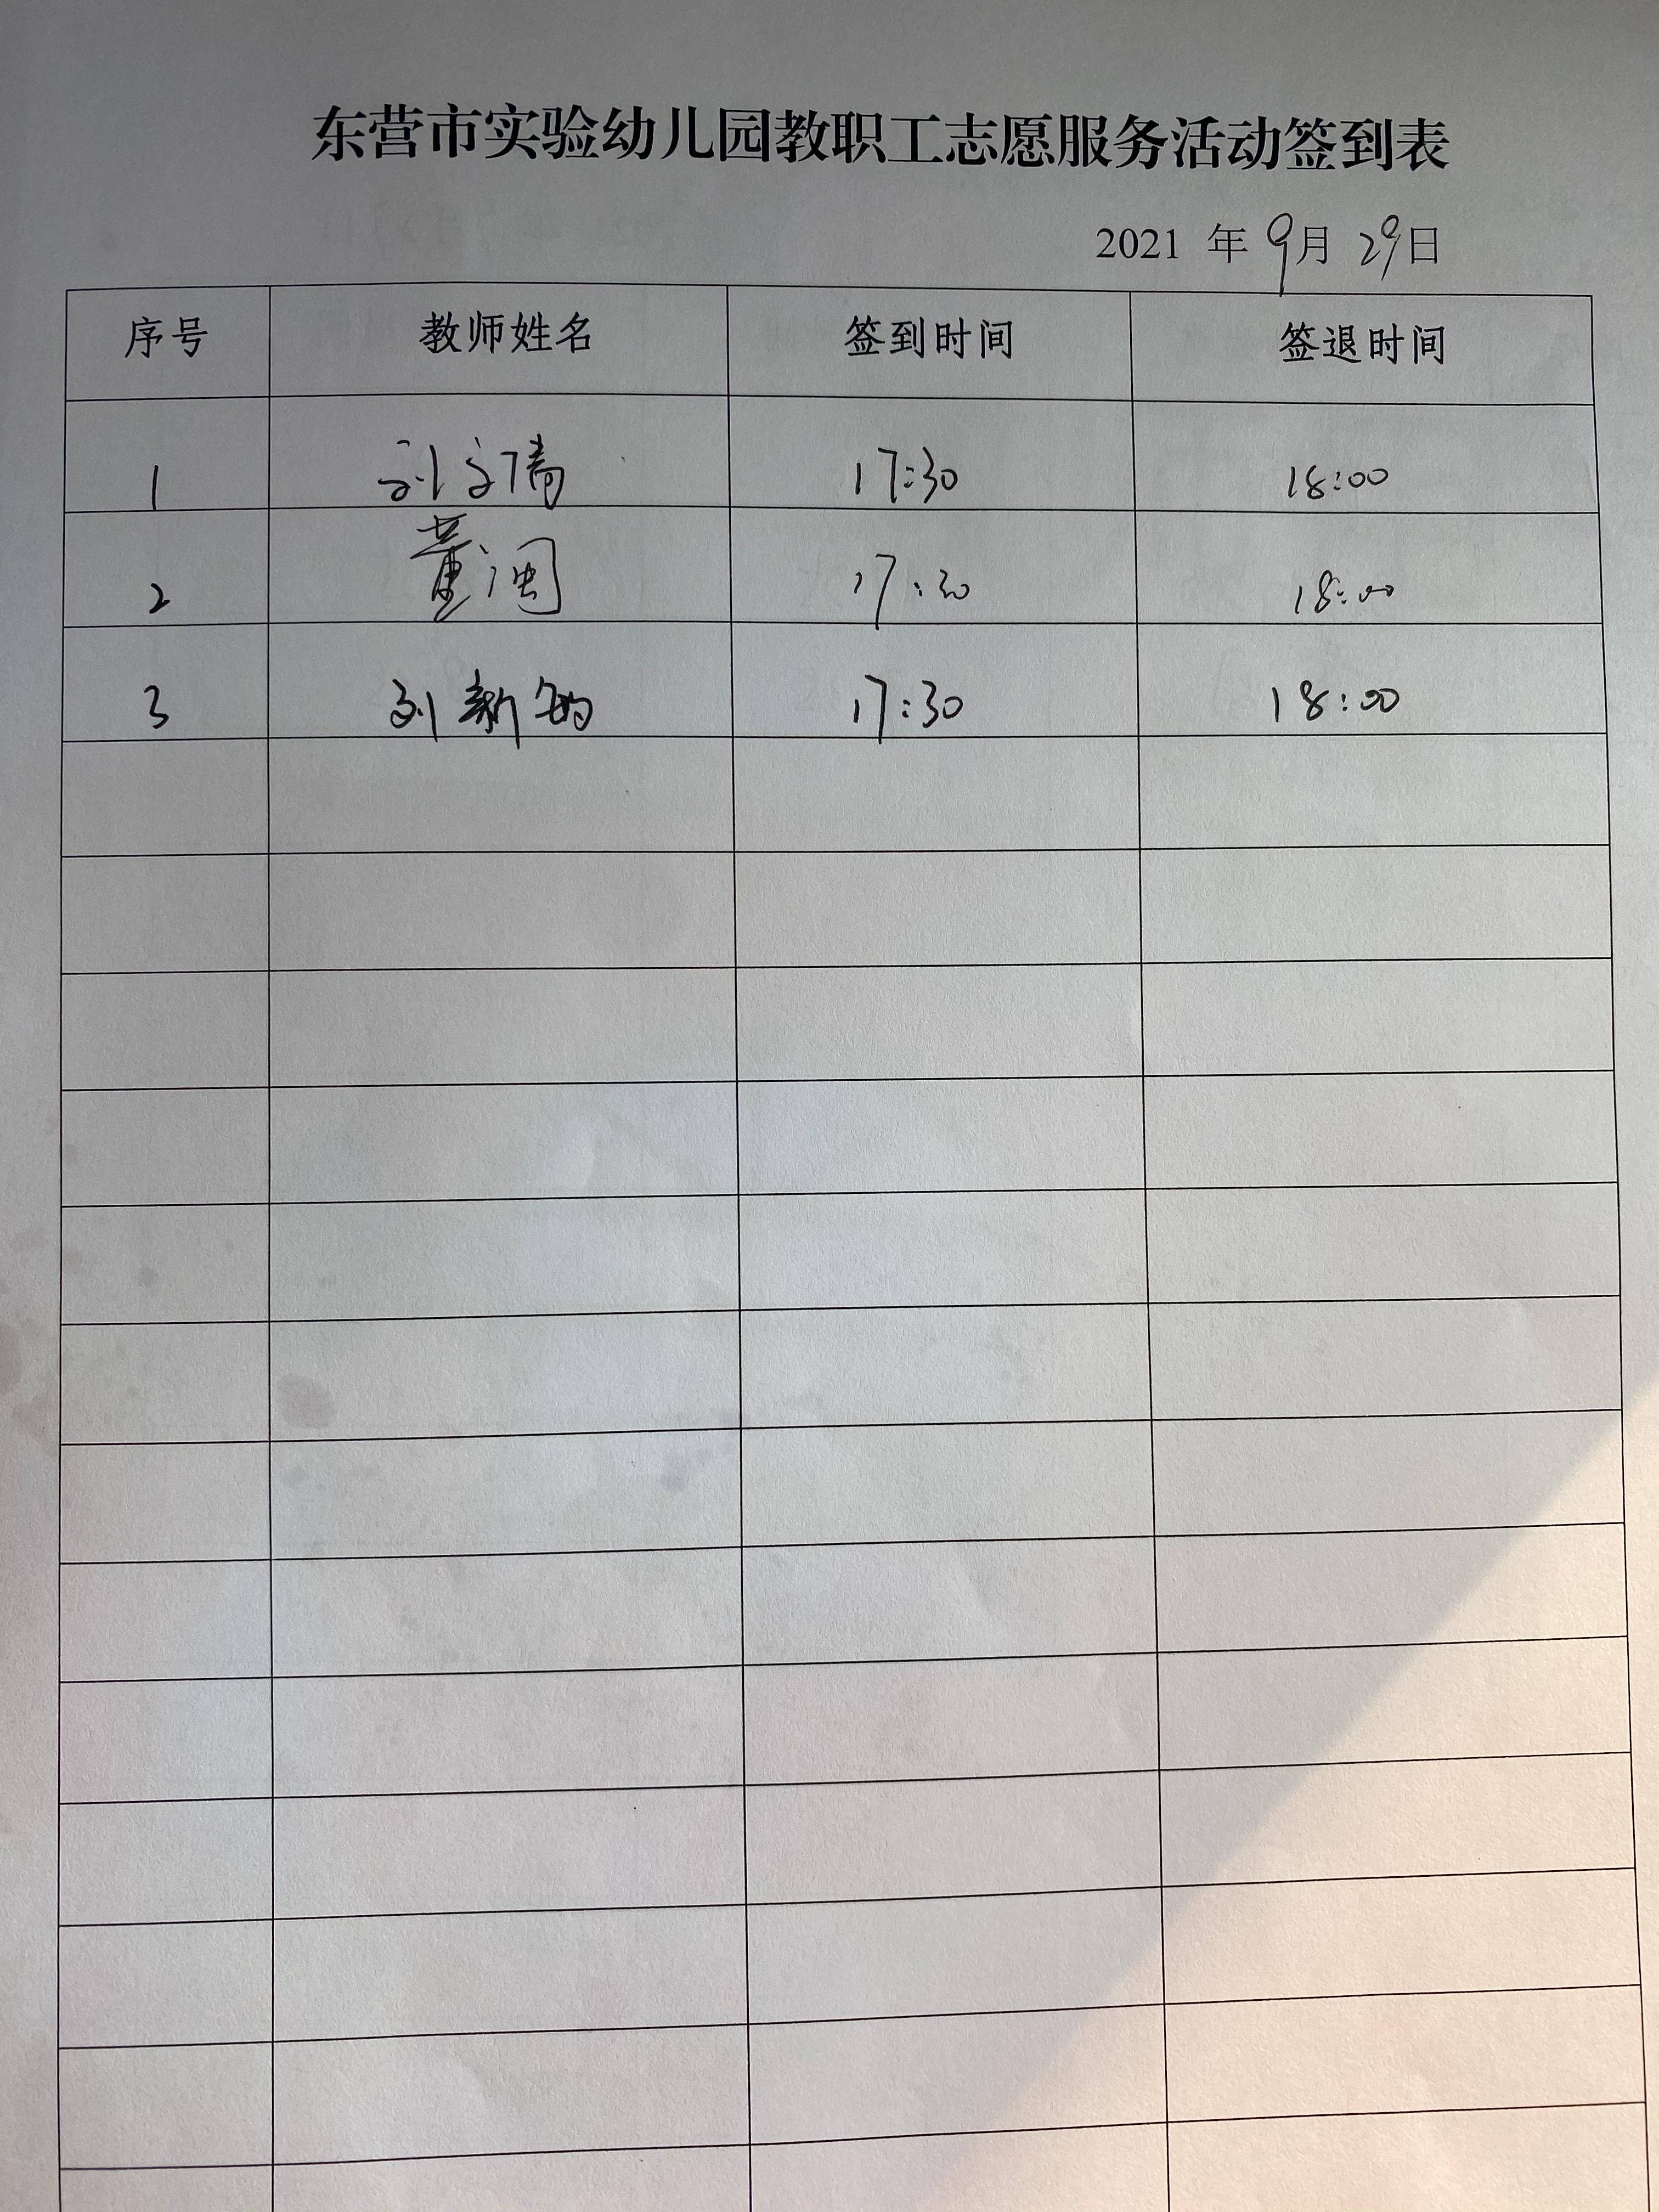 东营市实验幼儿园教职工志愿服务活动签到表
2021 年 9月 29日
序号 教师姓名 签到时间 签退时间
1 刘文倩 17:30 18:00
2 董闽 17:30 18:00
3 刘新 17:30 18:00